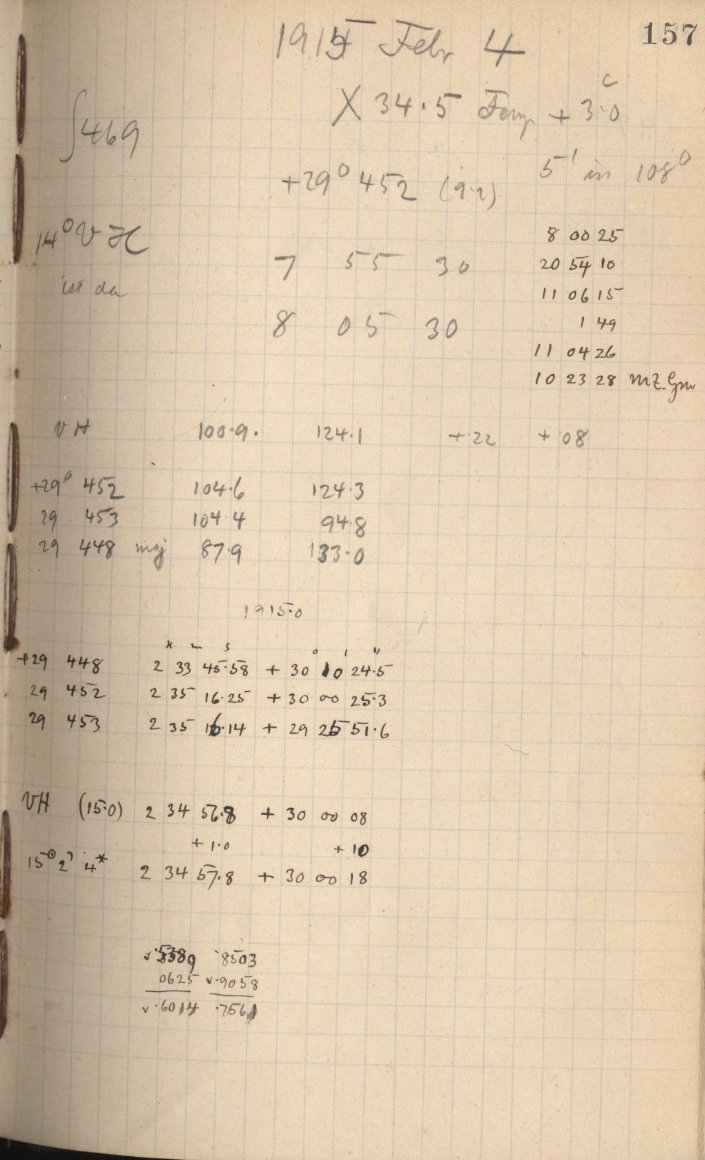 157
1915 Febr 4
X 34.5 Temp + 3.0 C
∫469
5' in 108°
+29° 452 (9.2)
14° VH
ist da
7 55 30
8 05 30
8 00 25
20 54 10
11 06 15
1 49
11 04 26
10 23 28 MZ Gm
VH 100.9. 124.1 +.22 +.08
+29° 452 104.6 124.3
29 453 104.4 94.8
29 448 maj 87.9 133.0
1915.0
h m s ° ' "
+29 448 2 33 45.58 + 30 10 24.5
29 452 2 35 16.25 + 30 00 25.3
29 453 2 35 16.14 + 29 25 51.6
VH (15.0) 2 34 56.8 + 30 00 08
+1.0 +10
15° 2' 4* 2 34 57.8 + 30 00 18
.8503
0625 v.9058
v.6014 .7561